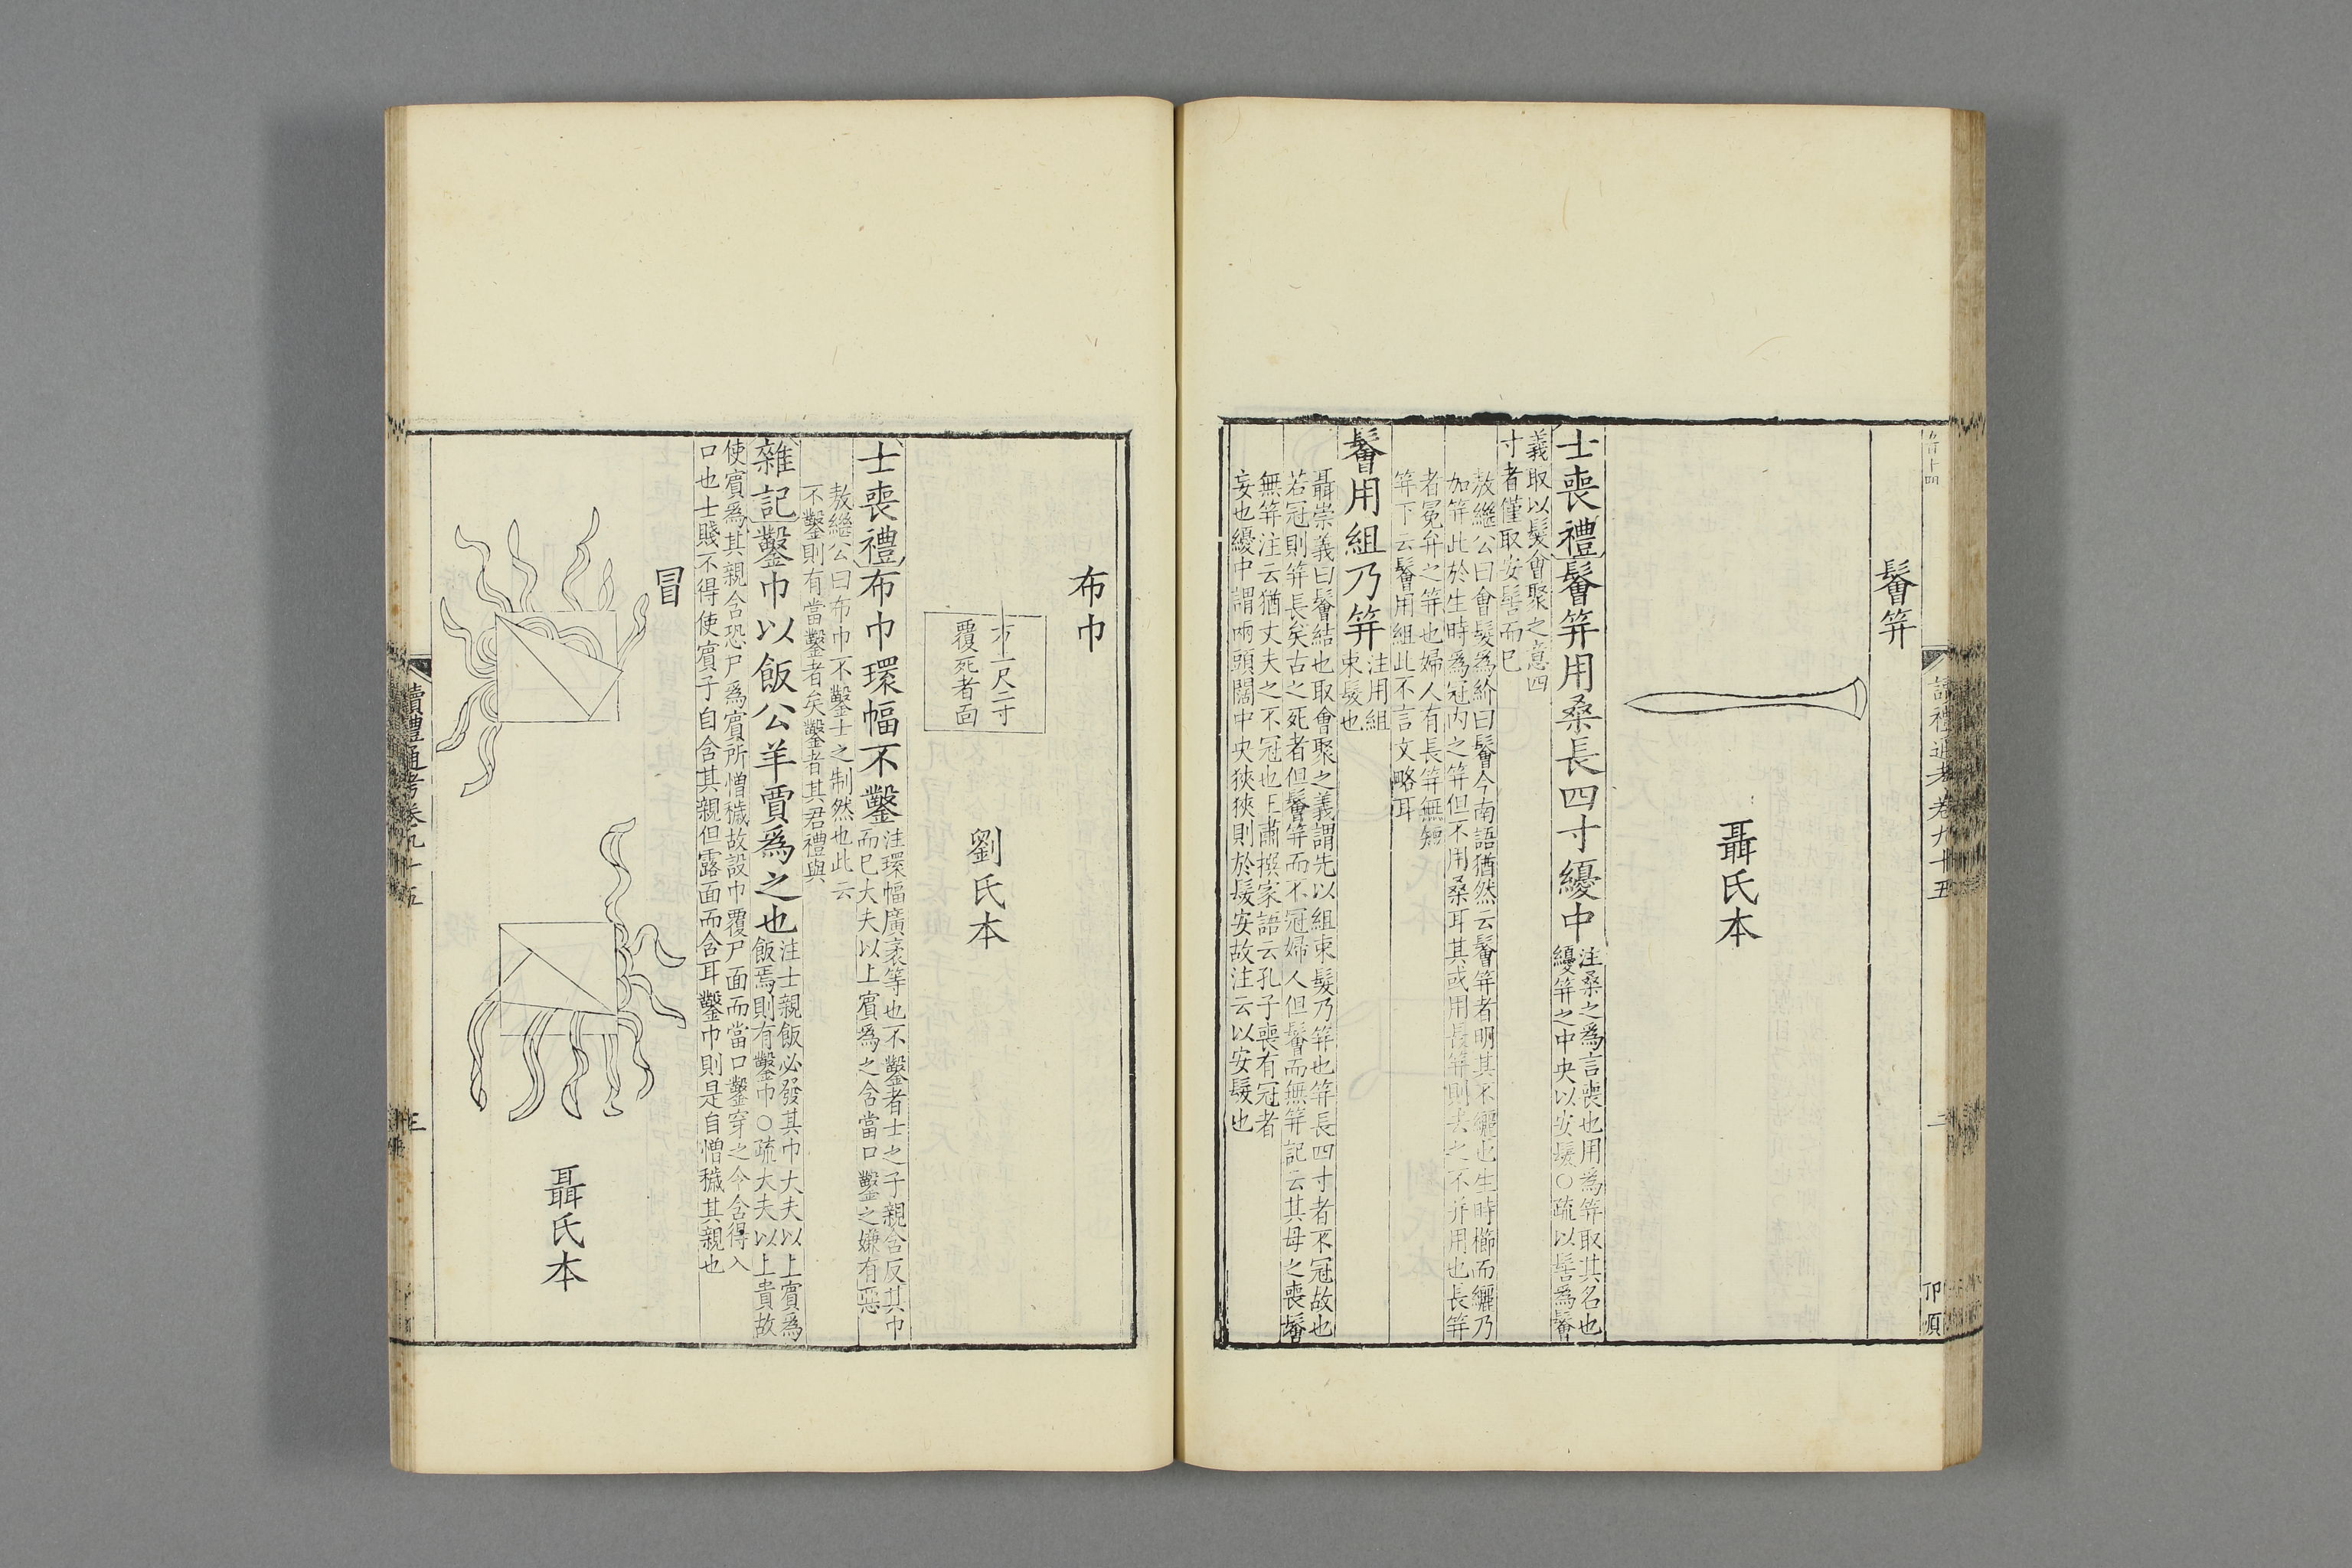 讀禮通考卷九十五
二
鬠笄
聶氏本
士喪禮鬠笄用桑長四寸纋中
注桑之為言喪也用為笄取其名也
纋笄之中央以安髮○疏以髻為鬠
義取以髮會聚之意四
寸者僅取安髻而已
敖繼公曰會髮為紒曰鬠今南語猶然云鬠笄者明其不纚也生時櫛而纚乃
加笄此於生時為冠內之笄但不用桑耳其或用長笄則去之不并用也長笄
者冕弁之笄也婦人有長笄無短
笄下云鬠用組此不言文略耳
鬠用組乃笄
注用組
束髮也
聶崇義曰鬠結也取會聚之義謂先以組束髮乃笄也笄長四寸者不冠故也
若冠則笄長矣古之死者但鬠笄而不冠婦人但鬠而無笄記云其母之喪鬠
無笄注云猶丈夫之不冠也王肅撰家語云孔子喪有冠者
妄也纋中謂兩頭闊中央狹狹則於髮安故注云以安髮也
布巾
方二尺二寸
覆死者面
劉氏本
士喪禮布巾環幅不鑿
注環幅廣袤等也不鑿者士之子親含反其巾
而已大夫以上賓為之含當口鑿之嫌有惡
敖繼公曰布巾不鑿士之制然也此云
不鑿則有當鑿者矣鑿者其君禮與
雜記鑿巾以飯公羊賈為之也
注士親飯必發其巾大夫以上賓為
飯焉則有鑿巾○疏大夫以上貴故
使賓為其親含恐尸為賓所憎穢故設巾覆尸面而當口鑿穿之令含得入
口也士賤不得使賓子自含其親但露面而含耳鑿巾則是自憎穢其親也
冒
聶氏本
讀禮通考卷九十五
三